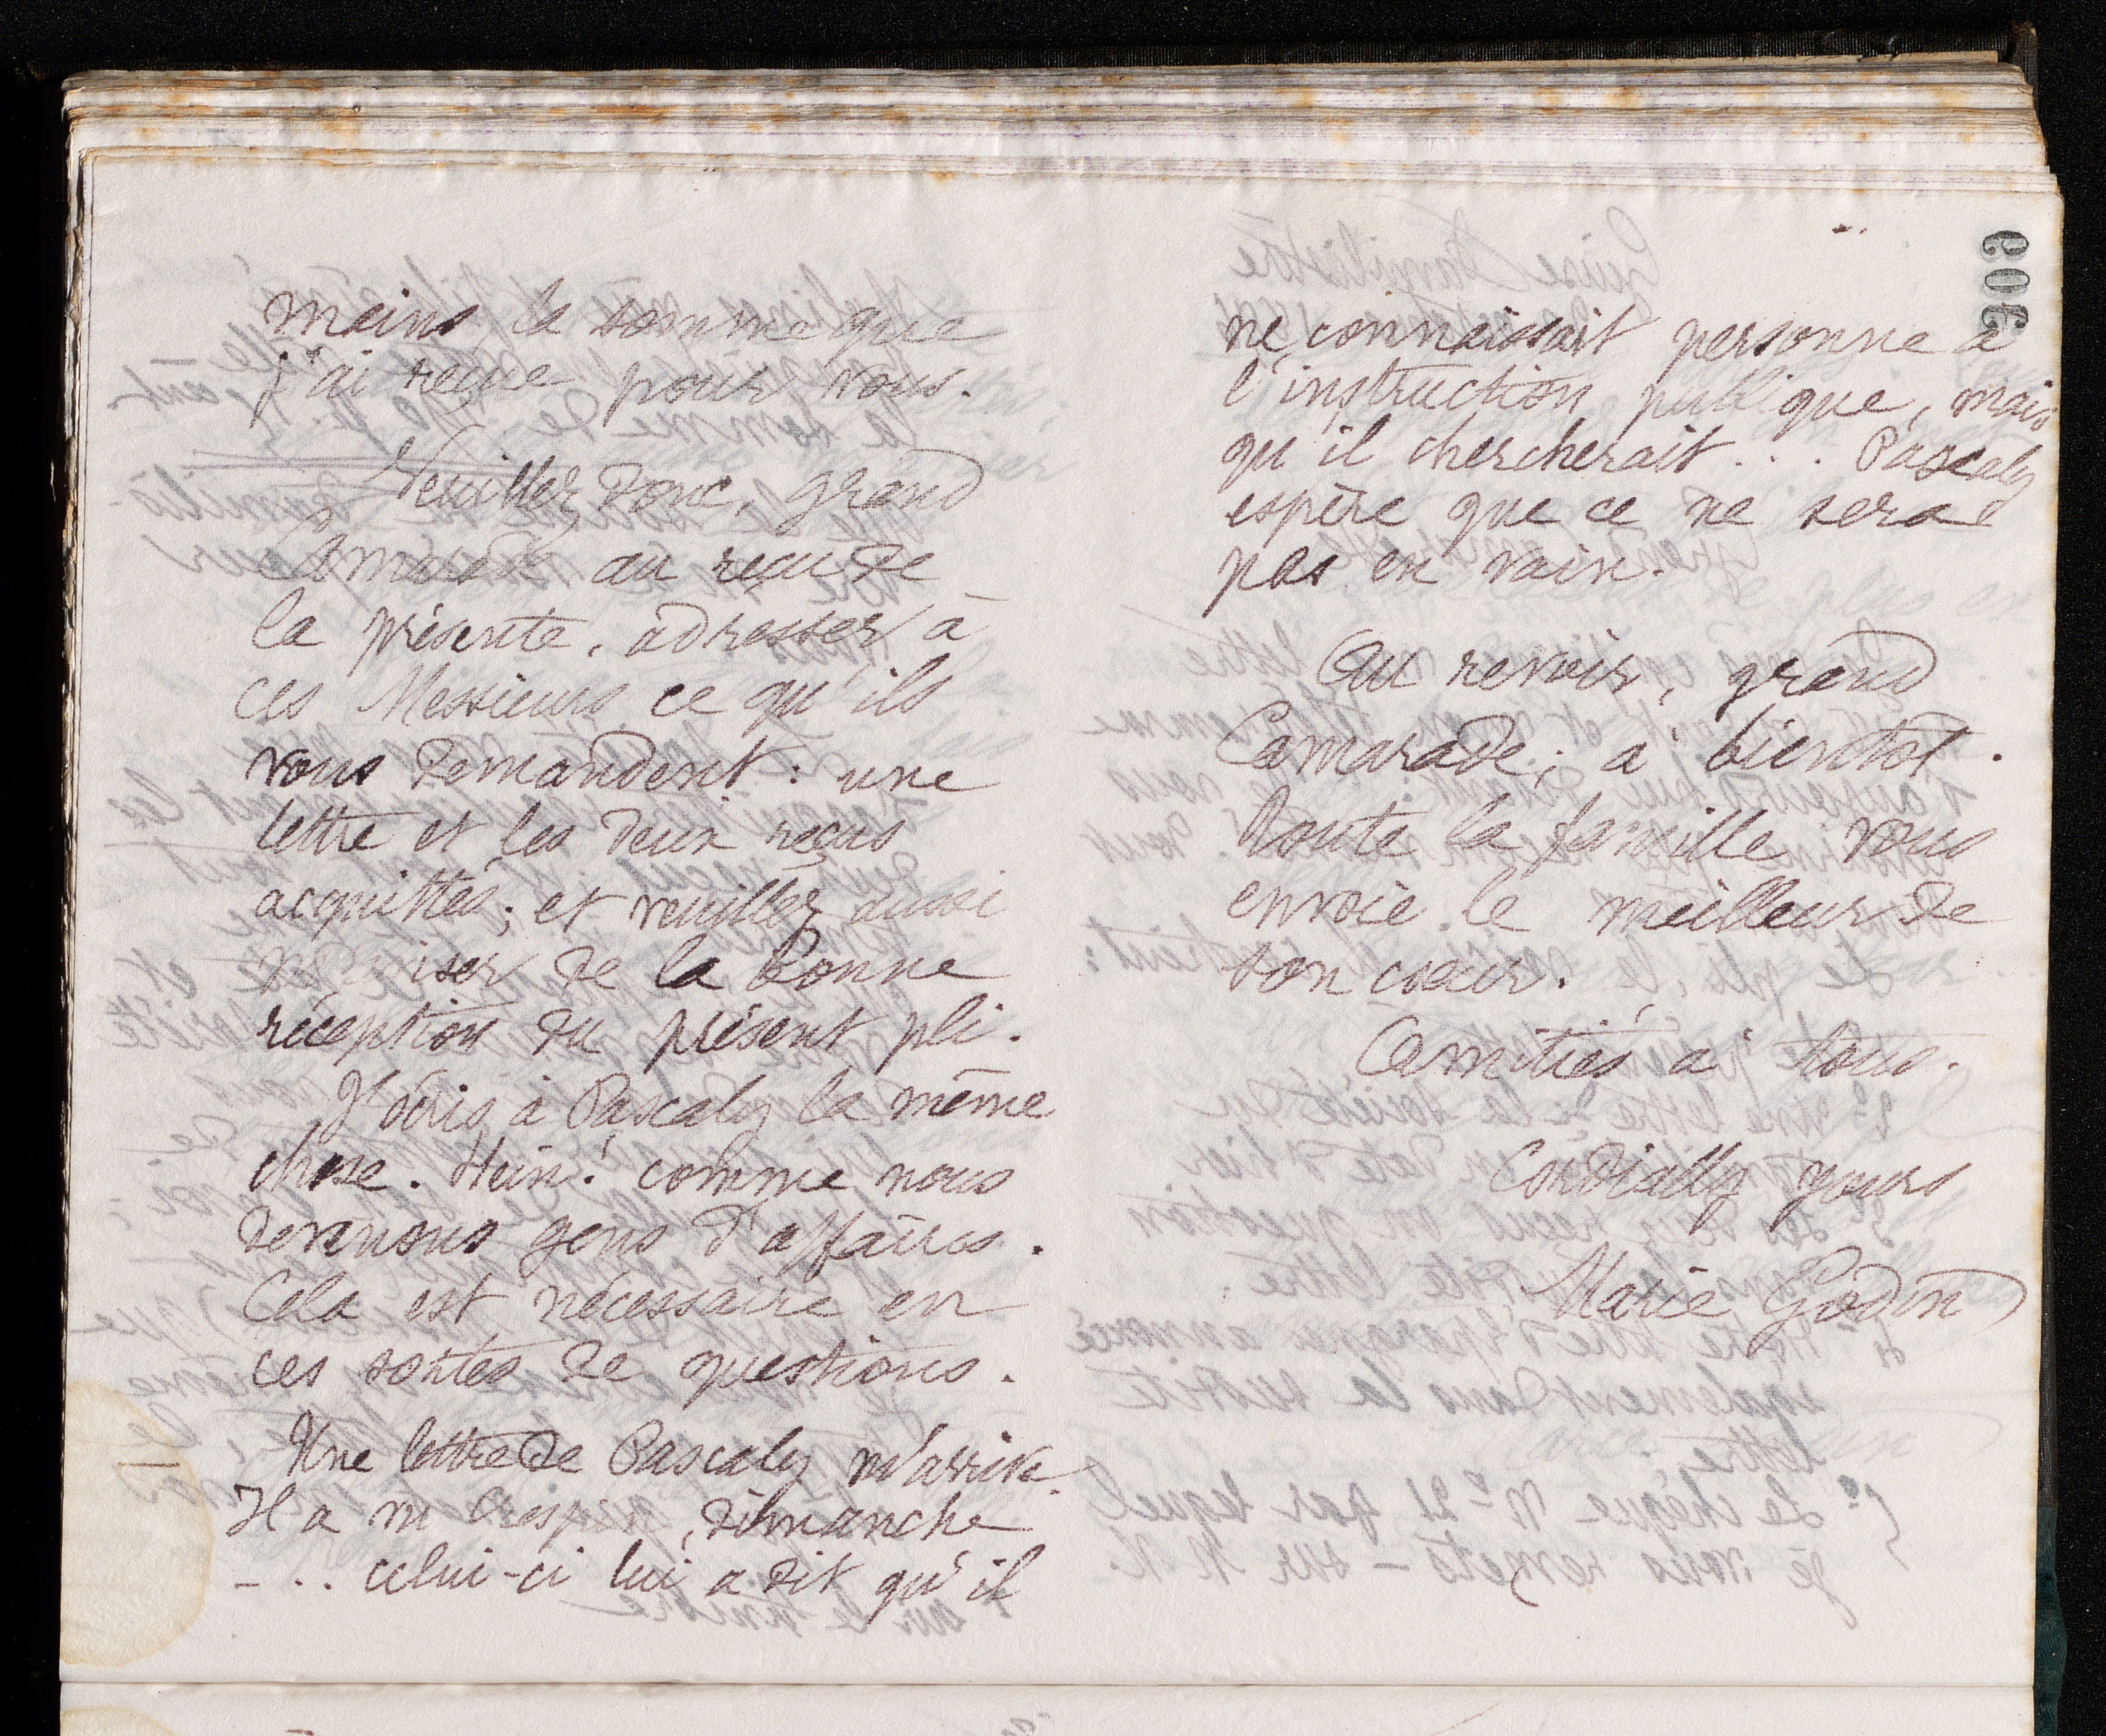 mains la somme que
j'ai reçue pour vous.
Veuillez donc, grand
Camarade, au reçu de
la présente, adresser à
ces Messieurs ce qu'ils
vous demandent : une
lettre et les deux reçus
acquittés ; et veuillez aussi
m'aviser de la bonne
réception du présent pli.
J'écris à Pascaly la même
chose. Hein! comme nous
devenons gens d'affaires.
Cela est nécessaire en
ces sortes de questions.
Une lettre de Pascaly m'arrive.
Il a vu Crespin, dimanche
- .. celui-ci lui a dit qu'il
609
ne connaissait personne à
l'instruction publique, mais
qu'il chercherait ... Pascaly
espère que ce ne sera
pas en vain.
Au revoir, grand
Camarade ; à bientôt.
Toute la famille vous
envoie le meilleur de
son cœur.
Amitiés à tous.
Cordially yours
Marie Godin